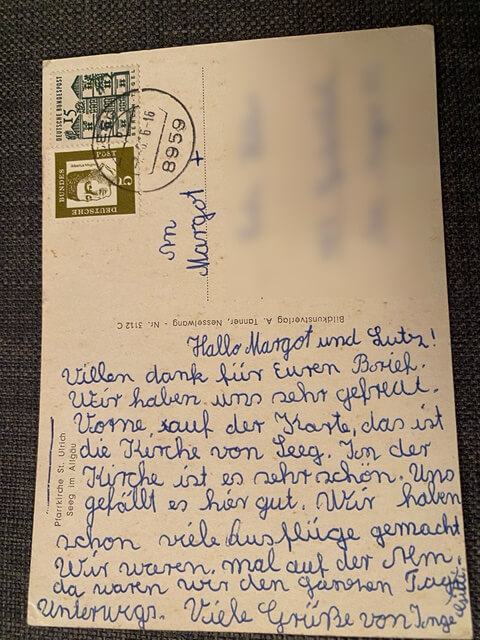 DEUTSCHE BUNDESPOST
15
DEUTSCHE
BUNDES
POST
5
8959
6-16
An
Margot +
Bildkunstverlag A. Tanner, Nesselwang - Nr. 3112 C
Pfarrkirche St. Ulrich
Seeg im Allgäu
Hallo Margot und Lutz!
Villen dank für Euren Brief.
Wir haben uns sehr gefreut.
Vorne, auf der Karte, das ist
die Kirche von Seeg. In der
Kirche ist es sehr schön. Uns
gefällt es hier gut. Wir haben
schon viele Ausflüge gemacht
Wir waren, mal auf der Alm.
da waren wir den ganzen Tag
Unterwegs. Viele Grüße von Inge